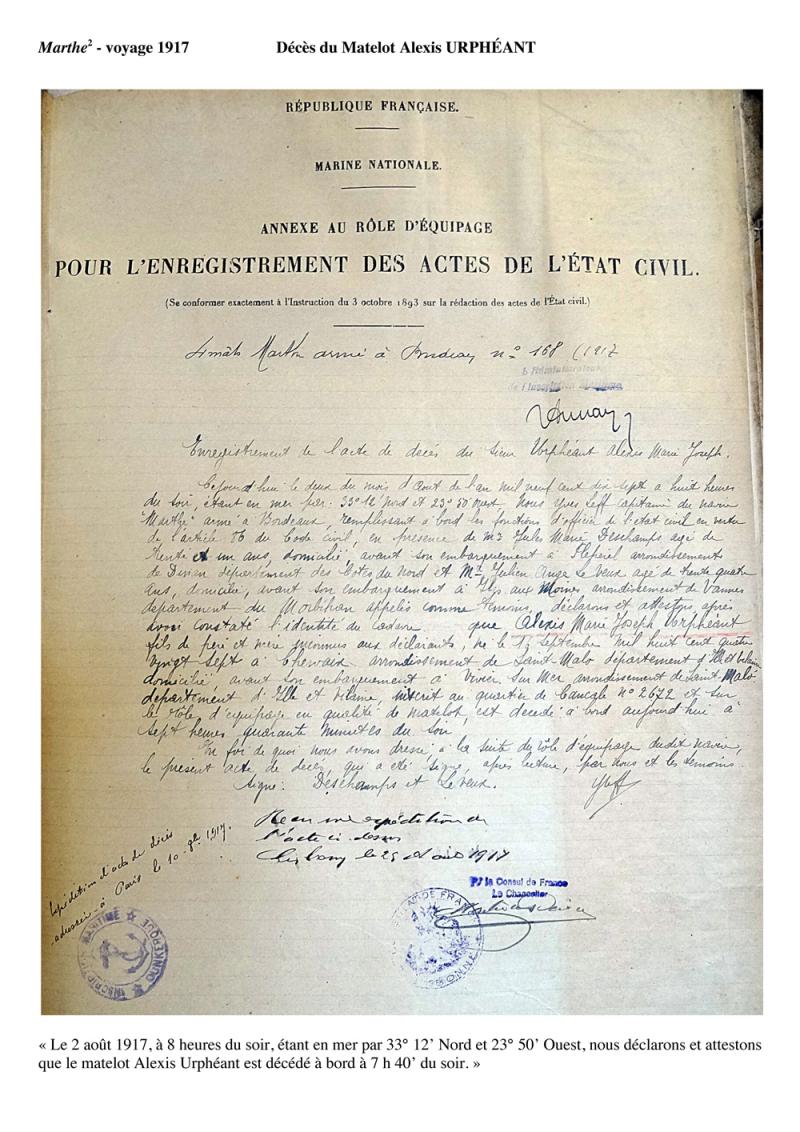 Marthe² - voyage 1917 Décès du Matelot Alexis URPHÉANT
RÉPUBLIQUE FRANÇAISE.
MARINE NATIONALE.
ANNEXE AU RÔLE D'ÉQUIPAGE
POUR L'ENREGISTREMENT DES ACTES DE L'ÉTAT CIVIL.
(Se conformer exactement à l'Instruction du 3 octobre 1893 sur la rédaction des actes de l'État civil.)
4 mâts armé à Bordeaux n° 168 (1917
L'Administrateur
de l'Inscription
Enregistrement de l'acte de décès du sieur Urphéant Alexis Marie Joseph.
Cejourd'hui le deux du mois d'Aout de l'an mil neuf cent dix sept a huit heures
du soir, étant en mer par 33° 12' Nord et 23° 50' Ouest, Nous Yves Leff capitaine du navire
Marthe armé a Bordeaux, remplissant à bord les fonctions d'officier de l'état civil en vertu
de l'article 86 du Code civil, en présence de Mr Jules Marie Deschamps agé de
trente et un ans, domicilié, avant son embarquement à arrondissement
de Dinan département des Cotes du Nord et Mr Julien Ange Le Veux agé de trente quatre
ans, domicilié, avant son embarquement à aux Moines arrondissement de Vannes
département du Morbihan appelés comme témoins, déclarons et attestons après
avoir constaté l'identité du cadavre que Alexis Marie Joseph Urphéant
fils de père et mère inconnus aux déclarants, né le septembre mil huit cent quatre
vingt sept à arrondissement de Saint-Malo département d'Ille et Vilaine
domicilié avant son embarquement à Vivier sur Mer arrondissement de Saint Malo
département d'Ille et Vilaine, inscrit au quartier de Cancale N° 2672 et sur
le rôle d'équipage en qualité de matelot, est décédé à bord aujourd'hui à
sept heures quarante minutes du soir.
En foi de quoi nous avons dressé à la suite du rôle d'équipage dudit navire,
le présent acte de décès qui a été signé, après lecture, par nous et les témoins.
Signé: Deschamps et Le Veux.
Reçu une expédition de
l'acte ci-dessus
le 25 Août 1917
Expédition d'acte de décès
adressée à Paris le 10 1917.
P/ le Consul de France
Le Chancelier
INSCRIPTION MARITIME ★ DUNKERQUE ★
DE FRANCE
LISBONNE
« Le 2 août 1917, à 8 heures du soir, étant en mer par 33° 12' Nord et 23° 50' Ouest, nous déclarons et attestons
que le matelot Alexis Urphéant est décédé à bord à 7 h 40' du soir. »